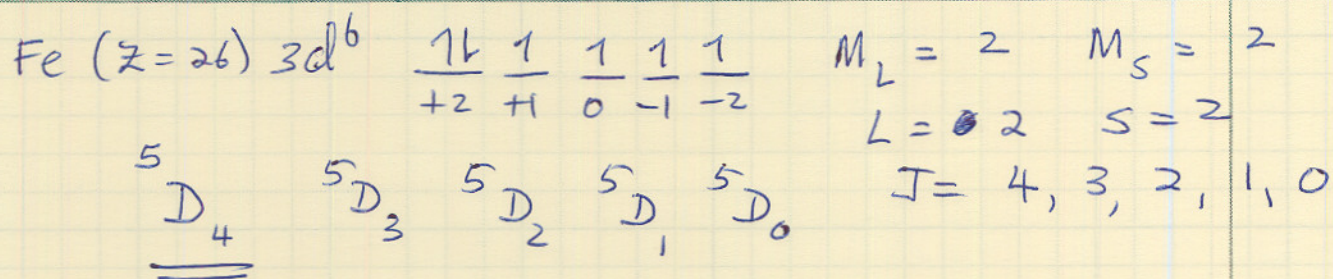 Fe (Z=26) 3d⁶ 1L 1 1 1 1 M_L = 2 M_S = 2
+2 +1 0 -1 -2
L = 2 S = 2
⁵D₄ ⁵D₃ ⁵D₂ ⁵D₁ ⁵D₀ J = 4, 3, 2, 1, 0